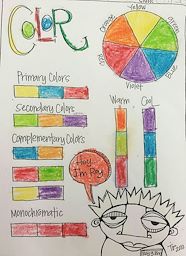 COLOR
Yellow
Orange
Green
Red
Blue
Violet
Primary Colors
Secondary Colors
Warm
Cool
Complementary Colors
Hey,
I'm Ray!
Monochromatic